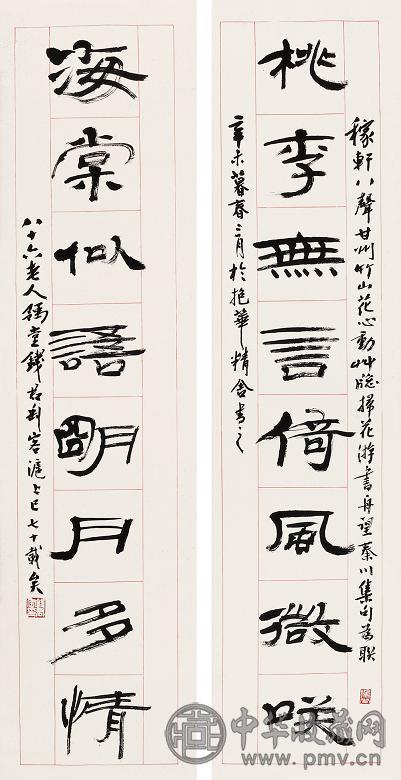 稼軒八聲甘州竹山花心動艸牕掃花游書舟望秦川集句為聯
桃李無言倚風微咲
辛未暮春三月於抱華精舍書之
海棠似語朙月多情
八十六老人豫堂錢君匋客滬上已七十載矣
中华收藏网
www.pmv.cn